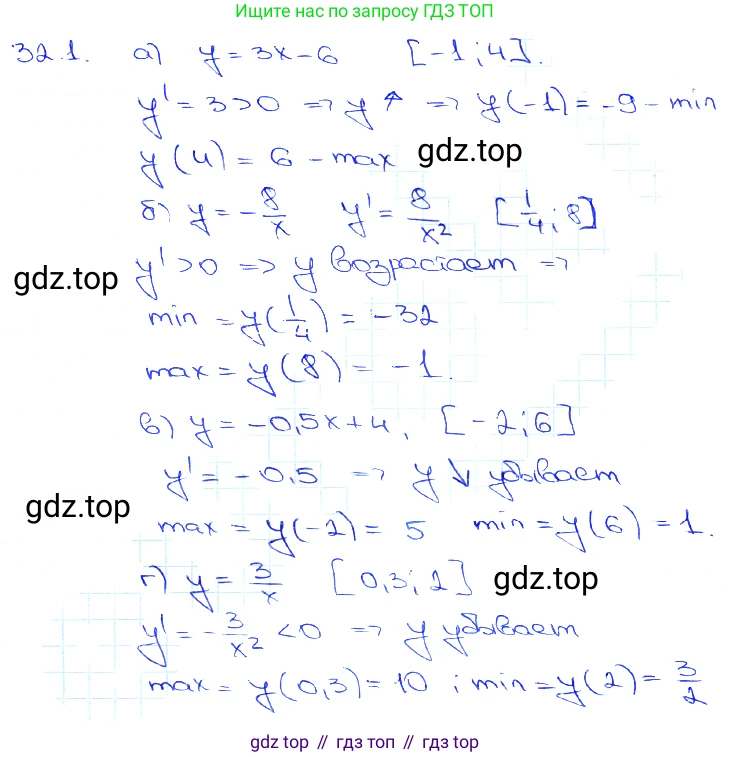 Ищите нас по запросу ГДЗ ТОП
32.1. а) y = 3x - 6 [-1; 4].
y' = 3 > 0 => y ↑ => y(-1) = -9 - min
y(4) = 6 - max gdz.top
б) y = -8/x y' = 8/x² [1/4; 8]
gdz.top y' > 0 => y возрастает =>
min = y(1/4) = -32
max = y(8) = -1.
в) y = -0,5x + 4, [-2; 6]
y' = -0,5 => y ↓ убывает
gdz.top max = y(-2) = 5 min = y(6) = 1.
г) y = 3/x [0,3; 2] gdz.top
y' = -3/x² < 0 => y убывает
max = y(0,3) = 10; min = y(2) = 3/2
gdz top // гдз топ // гдз top